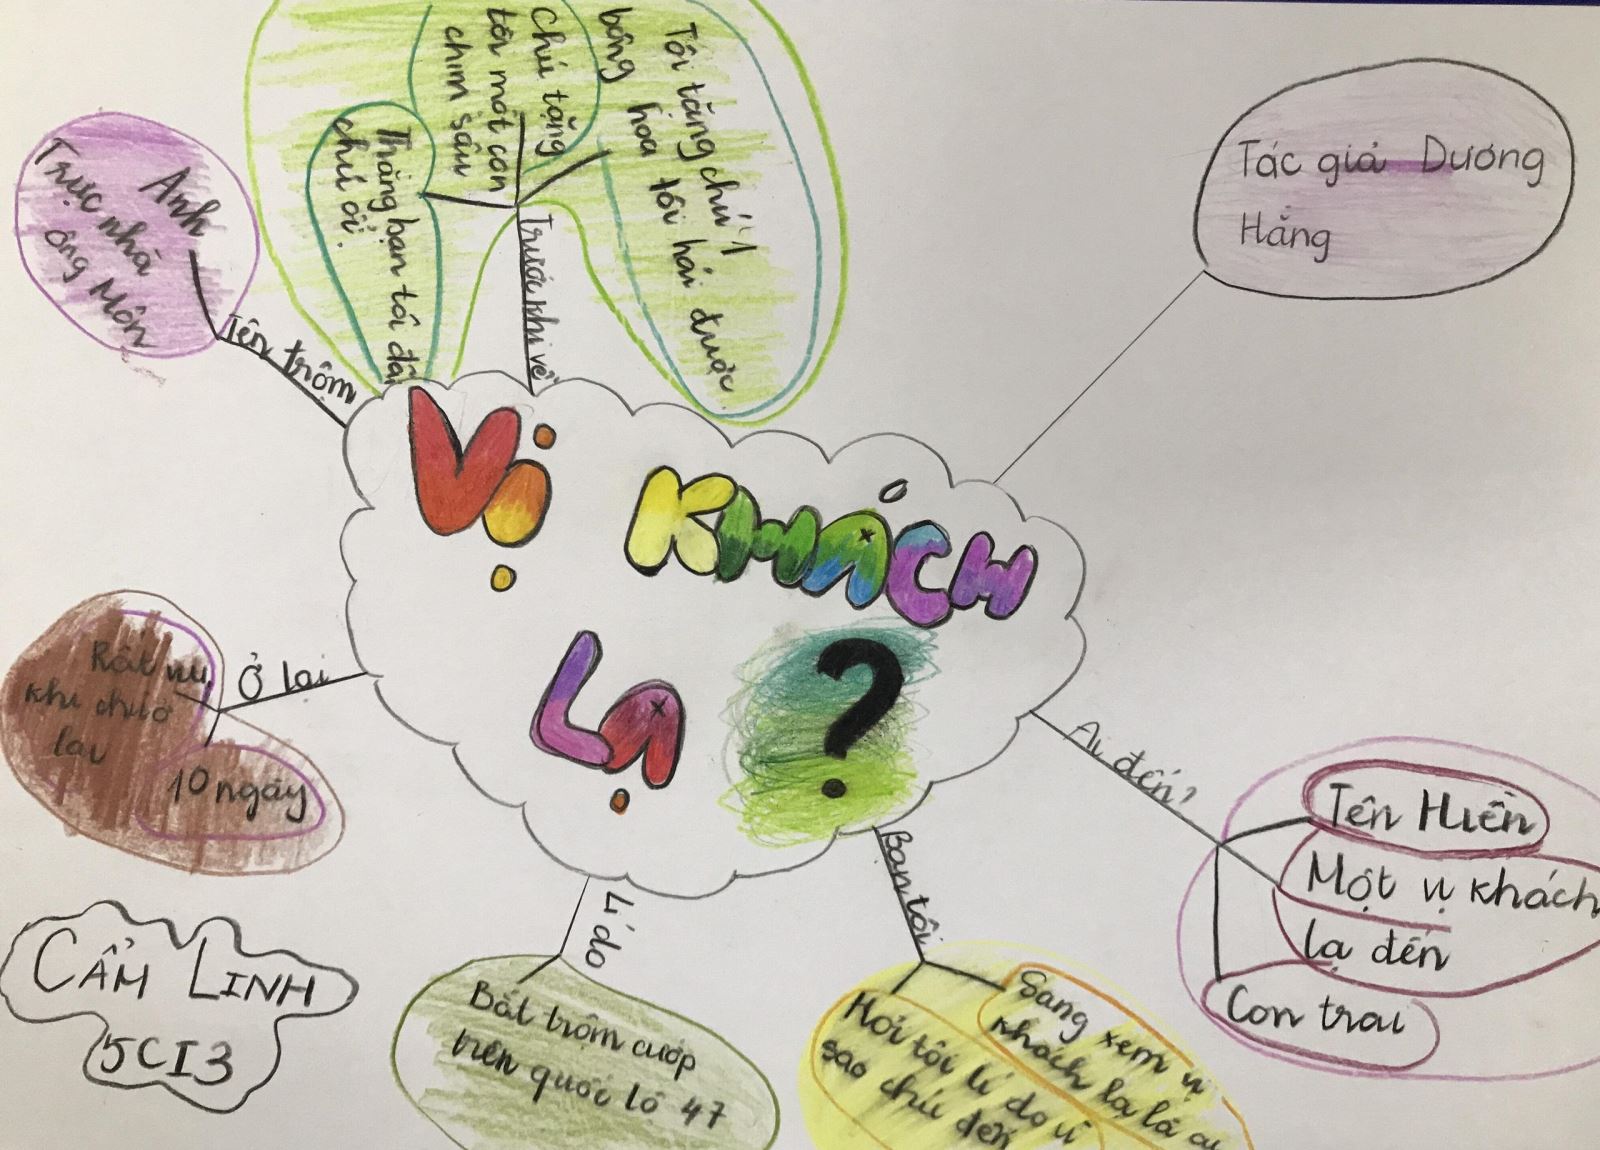 Vị KHÁCH
LẠ ?
Tác giả Dương
Hằng
Ai đến?
Tên Hiền
Một vị khách
lạ đến
Con trai
Bạn tôi
Sang xem vị
khách lạ là ai
Hỏi tôi lí do vì
sao chú đến
Lí do
Bắt trộm cướp
trên quốc lộ 47
Ở lại
Rất vui
khi chú ở
lại
10 ngày
Tên trộm
Anh
Trục nhà
ông Môn
Trước khi về
Thằng bạn tôi đã
chú ơi.
Chú tặng
tôi một con
chim sâu
Tôi tặng chú 1
bông hoa tôi hái được
CẨM LINH
5CI3